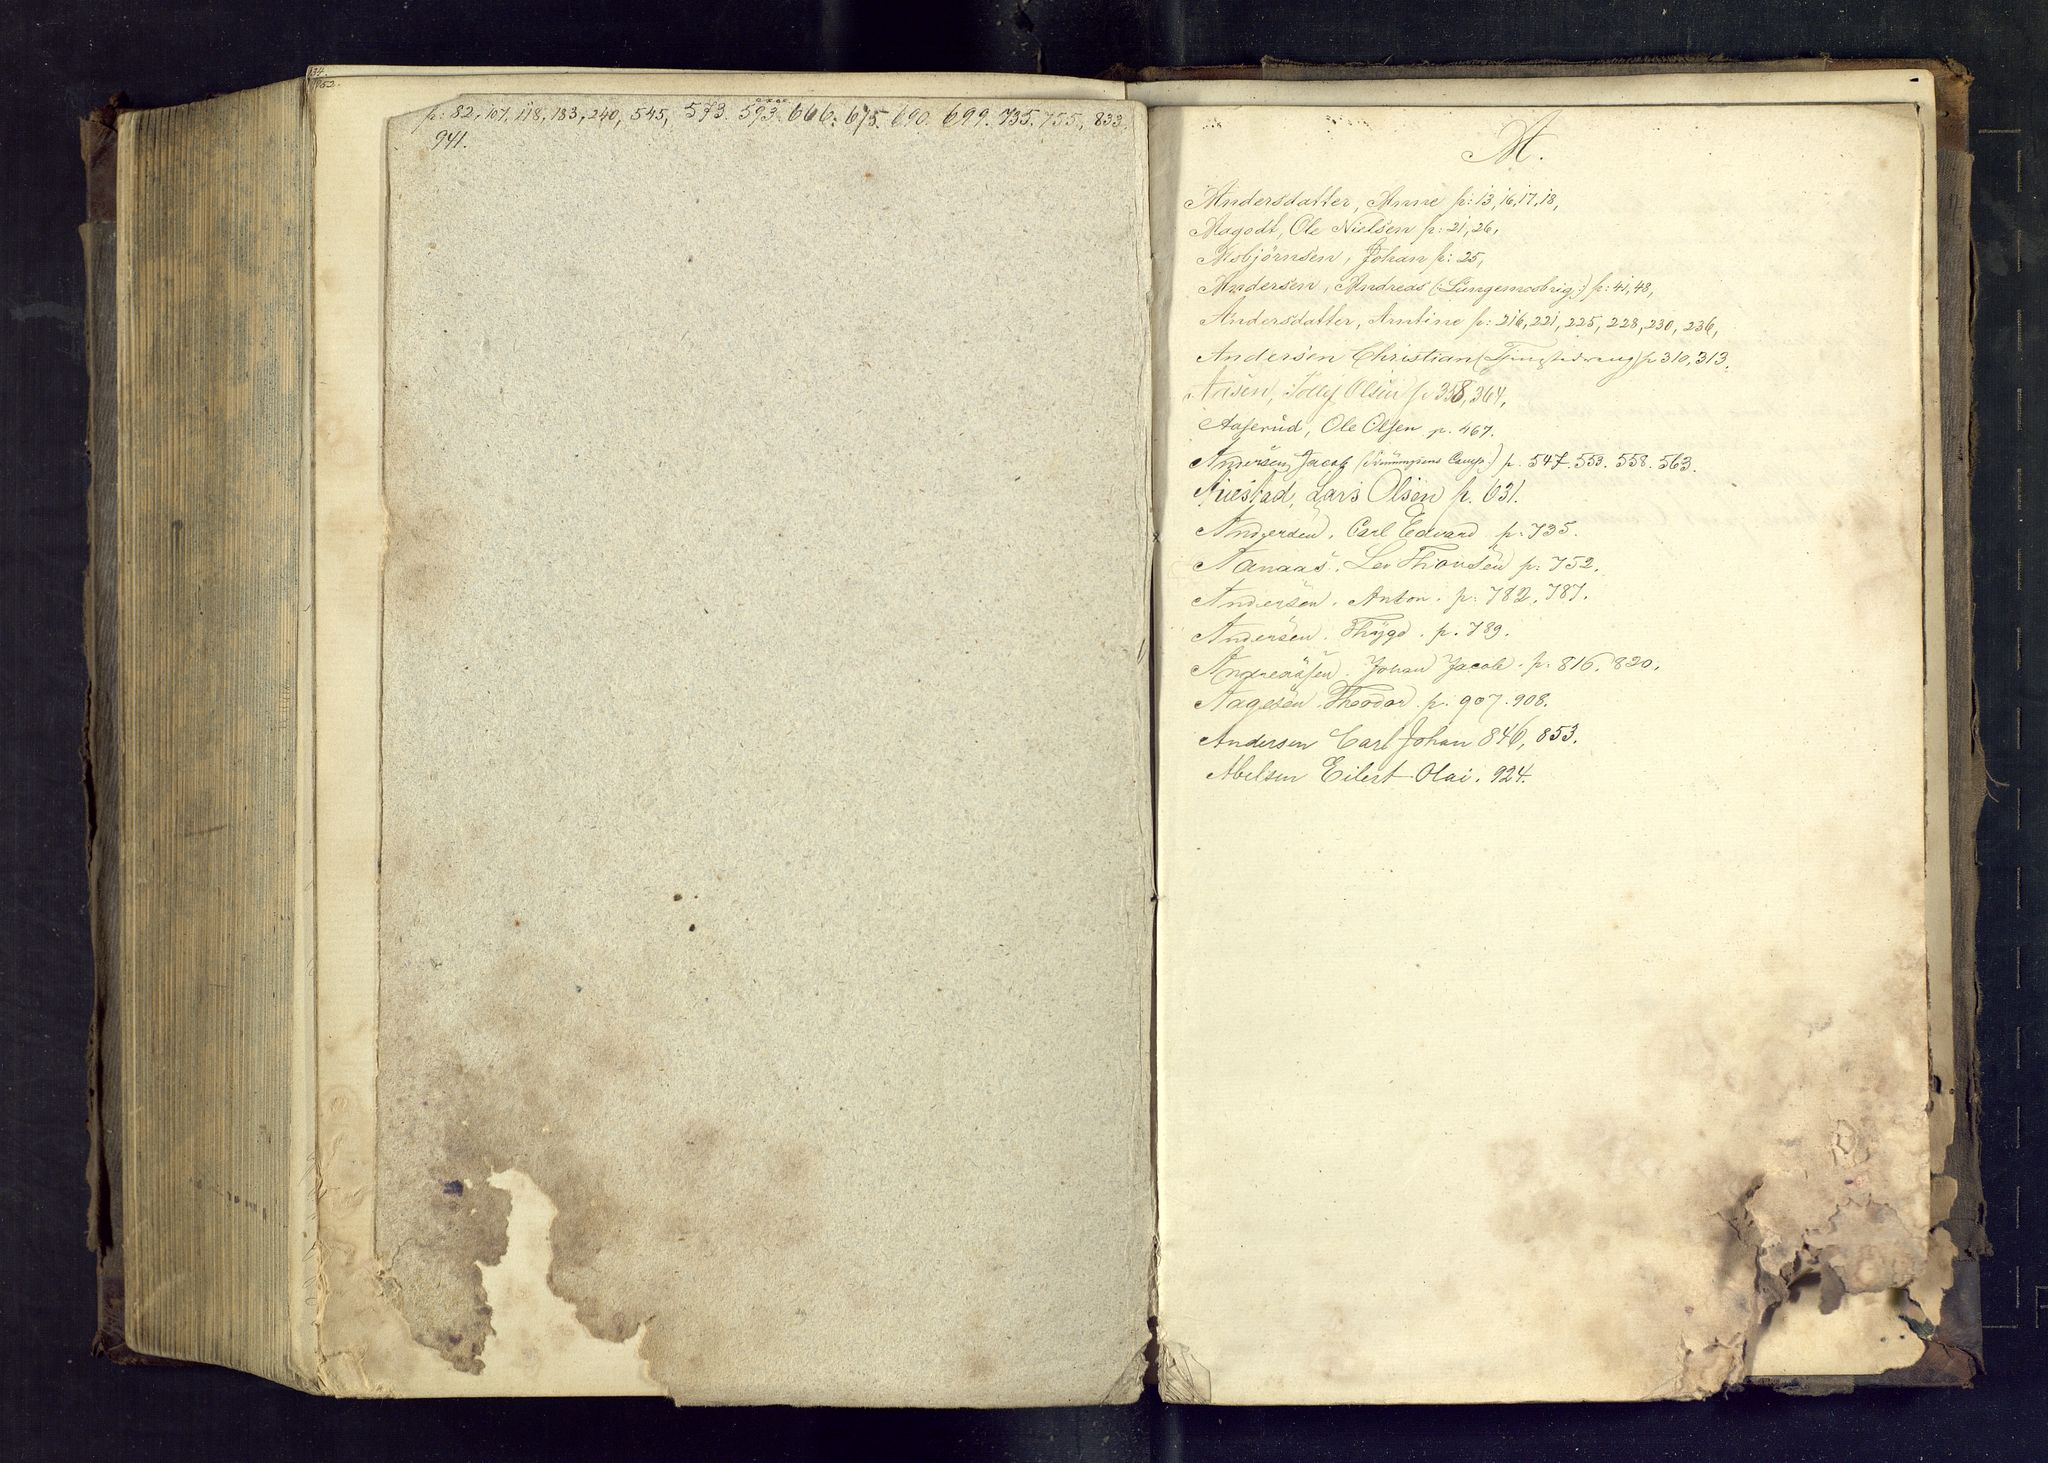 134.
152.
p: 82, 107, 118, 183, 240, 545, 573. 593. 666. 675. 690. 699. 735. 755., 833.
941.
A.
Andersdatter, Anne p: 13, 16, 17, 18,
Aagodt, Ole Nielsen p: 21, 26,
Asbjörnsen, Johan p: 25,
Andersen, Andreas p: 41, 48,
Andersdatter, Arntine p: 216, 221, 225, 228, 230, 236,
Andersen Christian p 310, 313.
Aasen, Tollef Olsen p. 358, 364,
Aaserud, Ole Olsen p. 467.
Andersen, Jacob p. 547. 553. 558. 563.
Lars Olsen p. 631.
Andersen, Carl Edvard p: 735.
Aanaas. p: 752.
Andersen. Anton. p: 782, 787.
Andersen. Thygo. p. 789.
Andreassen. Johan Jacob. p: 816. 820.
Aagesen. Theodor. p. 907. 908.
Andersen Carl Johan 846, 853.
Abelsen Eilert Olai. 924.